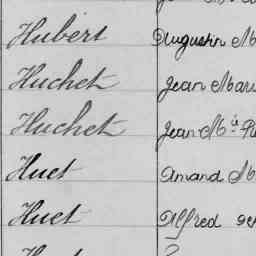 Hubert Augustin
Huchet Jean Mari
Huchet Jean M
Huet Amand
Huet Alfred